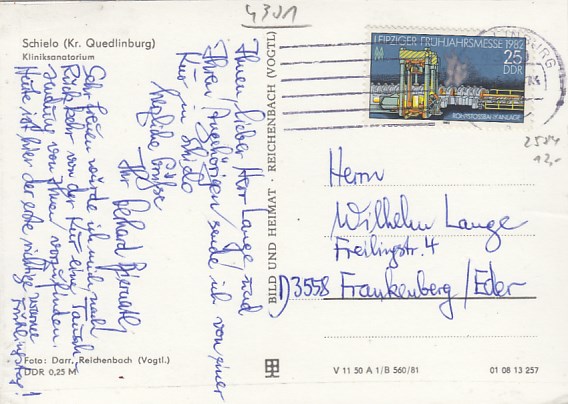 4301
Schielo (Kr. Quedlinburg)
Kliniksanatorium
Ihnen, lieber Herr Lange und
Ihren Angehörigen sende ich von einer
Kur in Schielo
herzliche Grüße
Ihr Gerhard
Sehr freuen würde ich mich, nach
Rückkehr von der Kur eine Tausch-
sendung von Ihnen vorzufinden.
Heute ist hier der erste richtige warme
Frühlingstag!
Foto: Darr, Reichenbach (Vogtl.)
DDR 0,25 M
BILD UND HEIMAT · REICHENBACH (VOGTL)
LEIPZIGER FRÜHJAHRSMESSE 1982
25
DDR
ROHRSTOSSBANKANLAGE
2504
12,-
Herrn
Wilhelm Lange
Freilingstr. 4
D3558 Frankenberg/Eder
V 11 50 A 1/B 560/81
01 08 13 257